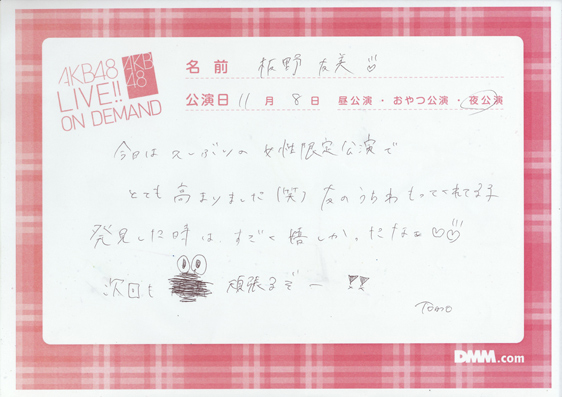 AKB48
LIVE!!
ON DEMAND
AKB
48
名前 板野友美
公演日 11月8日 昼公演・おやつ公演・夜公演
今日は久しぶりの女性限定公演で
とても高まりました(笑) 友のうちわもってくれてる子
発見した時は、すごく嬉しかったなぁ♡♡
次回も 頑張るぞー!!
Tomo
DMM.com